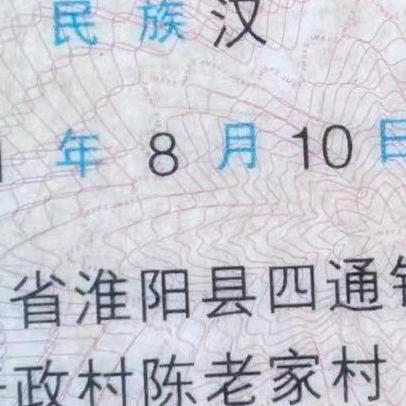 民 族 汉
年 8 月 10 日
省淮阳县四通
政村陈老家村